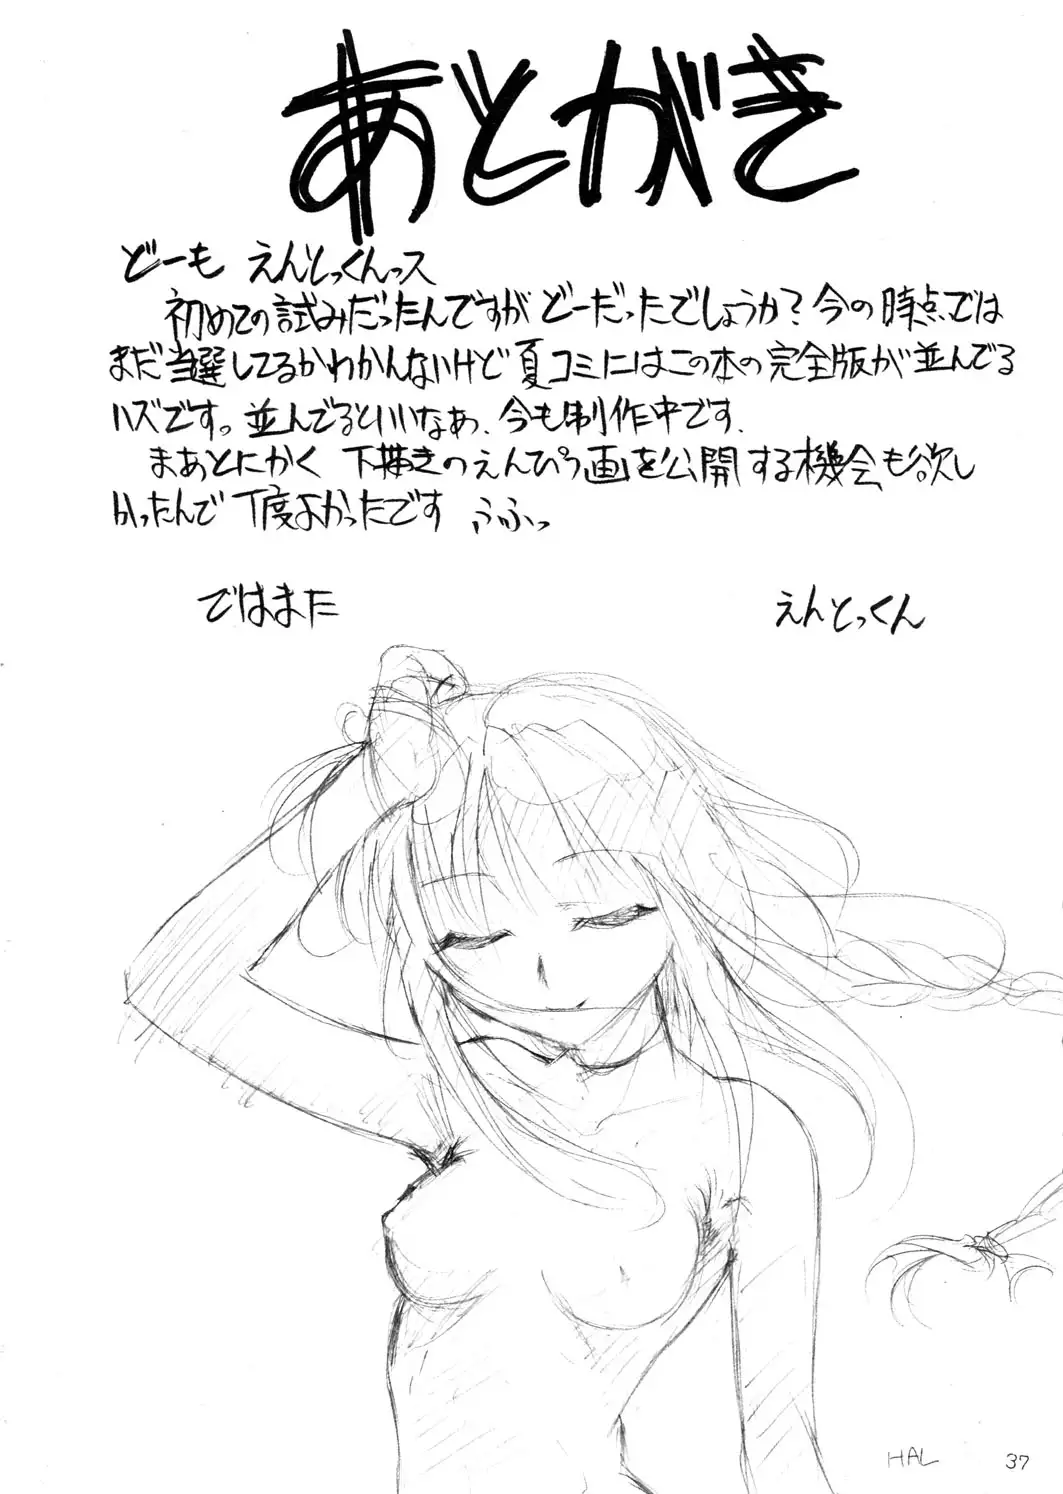 あとがき
どーも えんとっくんっス
初めての試みだったんですが どーだったでしょうか?今の時点では
まだ当選してるかわかんないけど夏コミにはこの本の完全版が並んでる
ハズです。並んでるといいなあ、今も制作中です.
まあとにかく 下描きのえんぴつ画を公開する機会も欲し
かったんで丁度よかったです ふふっ
ではまた
えんとっくん
HAL
37